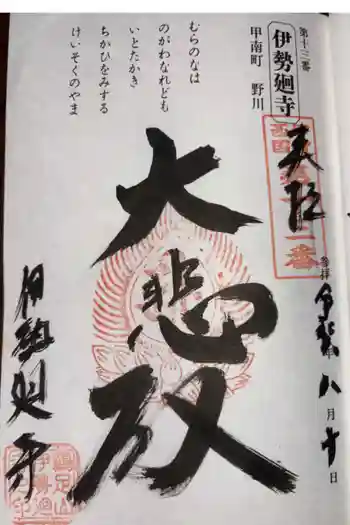 第十三番
伊勢廻寺
甲南町 野川
むらのなは
のがわなれども
いとたかき
ちかひをみする
けいそくのやま
奉拝
参拝 令和 年 八月十日
大悲殿
伊勢廻寺